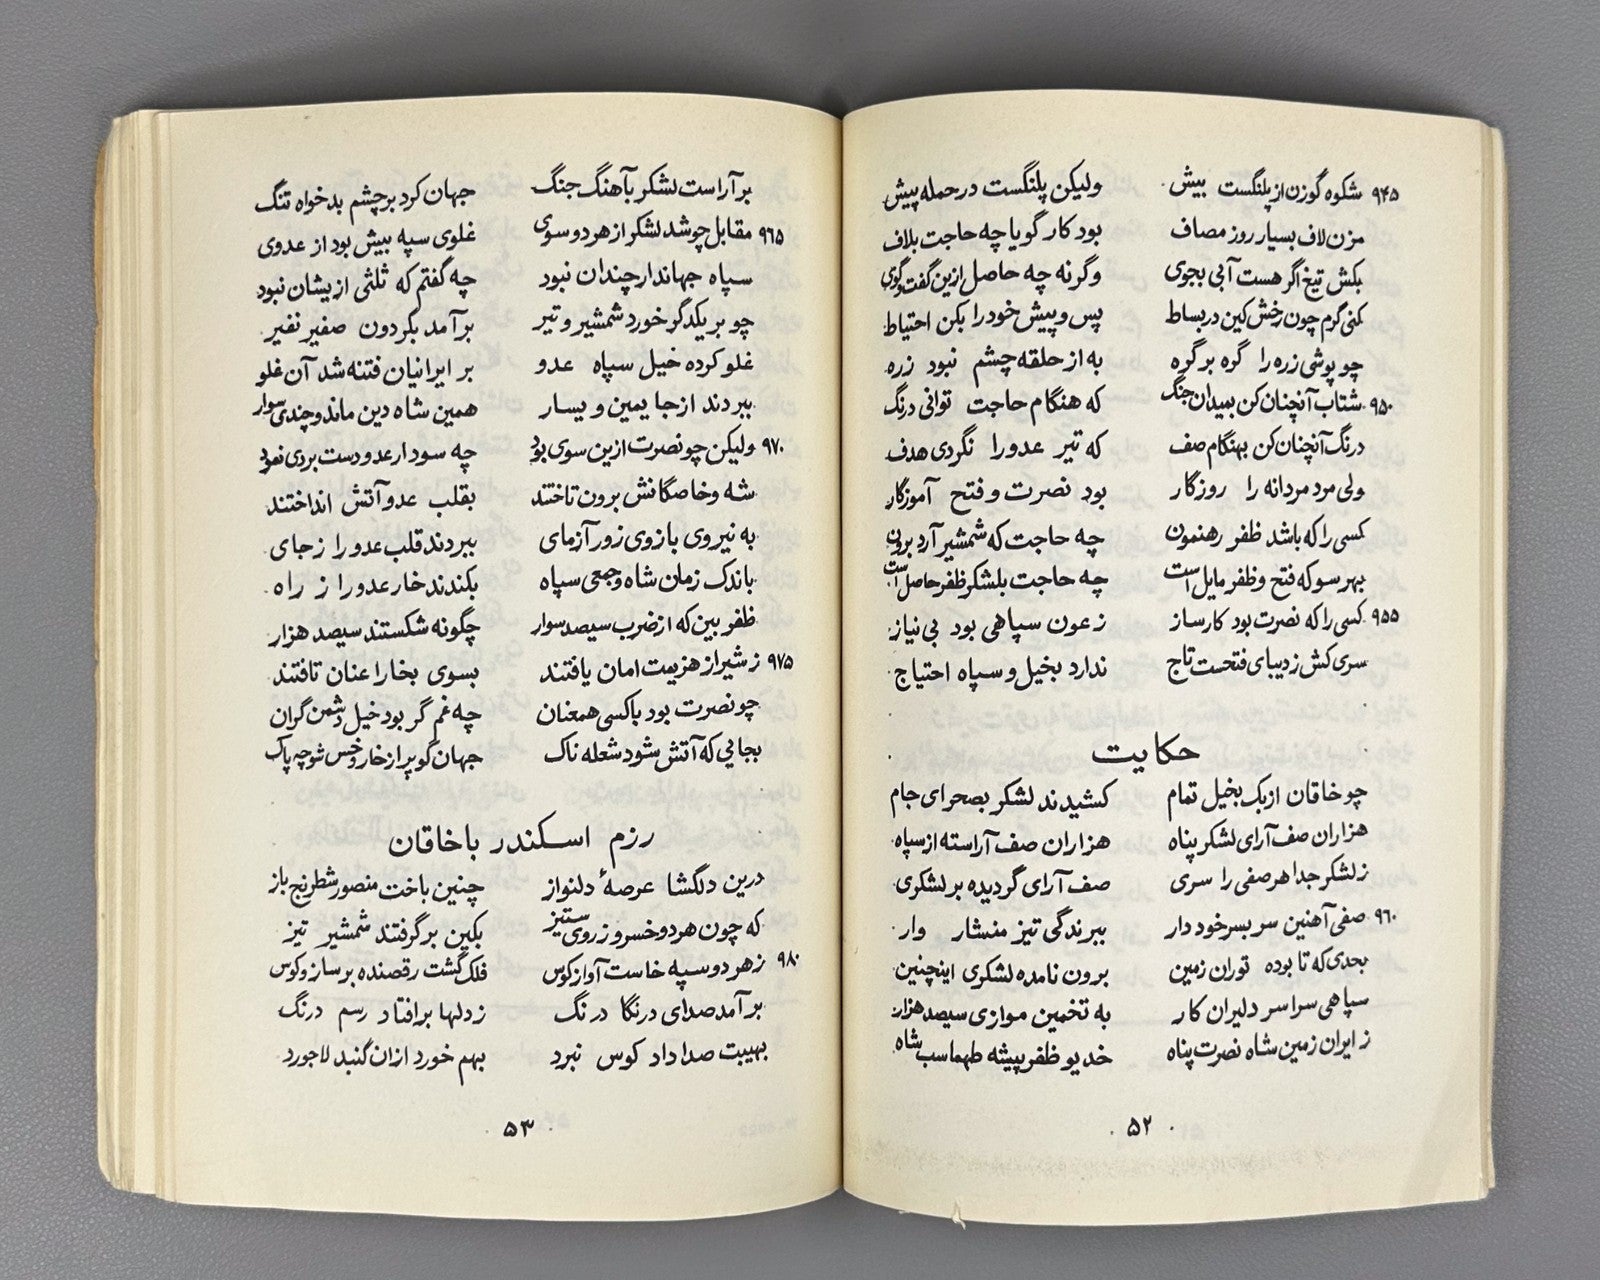 ۹۴۵ شکوه گوزن از پلنگست بیش ولیکن پلنگست در حمله پیش
مزن لاف بسیار روز مصاف بود کار گویا چه حاجت بلاف
بکش تیغ اگر هست آبی بجوی وگرنه چه حاصل ازین گفت و گوی
کنی گرم چون رخش کین در بساط پس و پیش خود را بکن احتیاط
چو پوشی زره را گره بر گره به از حلقه چشم نبود زره
۹۵۰ شتاب آنچنان کن بمیدان جنگ که هنگام حاجت توانی درنگ
درنگ آنچنان کن بهنگام صف که تیر عدو را نگردی هدف
ولی مرد مردانه را روزگار بود نصرت و فتح آموزگار
کسی را که باشد ظفر رهنمون چه حاجت که شمشیر آرد برون
بهر سو که فتح و ظفر مایل است چه حاجت بلشکر ظفر حاصل است
۹۵۵ کسی را که نصرت بود کارساز ز عون سپاهی بود بی نیاز
سری کش ز دیبای فتحست تاج ندارد بخیل و سپاه احتیاج
حکایت
چو خاقان ازبک بخیل تمام کشیدند لشکر بصحرای جام
هزاران صف آرای لشکر پناه هزاران صف آراسته از سپاه
ز لشکر جدا هر صفی را سری صف آرای گردیده بر لشکری
۹۶۰ صفی آهنین سر بسر خود دار ببرندگی تیز منشار وار
بحدی که تا بوده توران زمین برون نامده لشکری اینچنین
سپاهی سراسر دلیران کار به تخمین موازی سیصد هزار
ز ایران زمین شاه نصرت پناه خدیو ظفر پیشه طهماسب شاه
۵۲
بر آراست لشکر بآهنگ جنگ جهان کرد بر چشم بدخواه تنگ
۹۶۵ مقابل چو شد لشکر از هر دو سوی غلوی سپه بیش بود از عدوی
سپاه جهاندار چندان نبود چه گفتم که ثلثی ازیشان نبود
چو بر یکدگر خورد شمشیر و تیر برآمد بگردون صفیر نفیر
غلو کرده خیل سپاه عدو بر ایرانیان فتنه شد آن غلو
ببردند از جا یمین و یسار همین شاه دین ماند و چندی سوار
۹۷۰ ولیکن چو نصرت ازین سوی بود چه سود ار عدو دست بردی نمود
شه و خاصگانش برون تاختند بقلب عدو آتش انداختند
به نیروی بازوی زور آزمای ببردند قلب عدو را ز جای
باندک زمان شاه و جمعی سپاه بکندند خار عدو را ز راه
ظفر بین که از ضرب سیصد سوار چگونه شکستند سیصد هزار
۹۷۵ ز شیراز هزیمت امان یافتند بسوی بخارا عنان تافتند
چو نصرت بود با کسی همعنان چه غم گر بود خیل دشمن گران
بجایی که آتش شود شعله ناک جهان گو پر از خار و خس شو چه پاک
رزم اسکندر با خاقان
درین دلگشا عرصهٔ دلنواز چنین باخت منصور شطرنج باز
که چون هر دو خسرو ز روی ستیز بکین برگرفتند شمشیر تیز
۹۸۰ ز هر دو سپه خاست آواز کوس فلک گشت رقصنده بر ساز و کوس
برآمد صدای درنگا درنگ ز دلها برافتاد رسم درنگ
بهیبت صدا داد کوس نبرد بهم خورد ازان گنبد لاجورد
۵۳